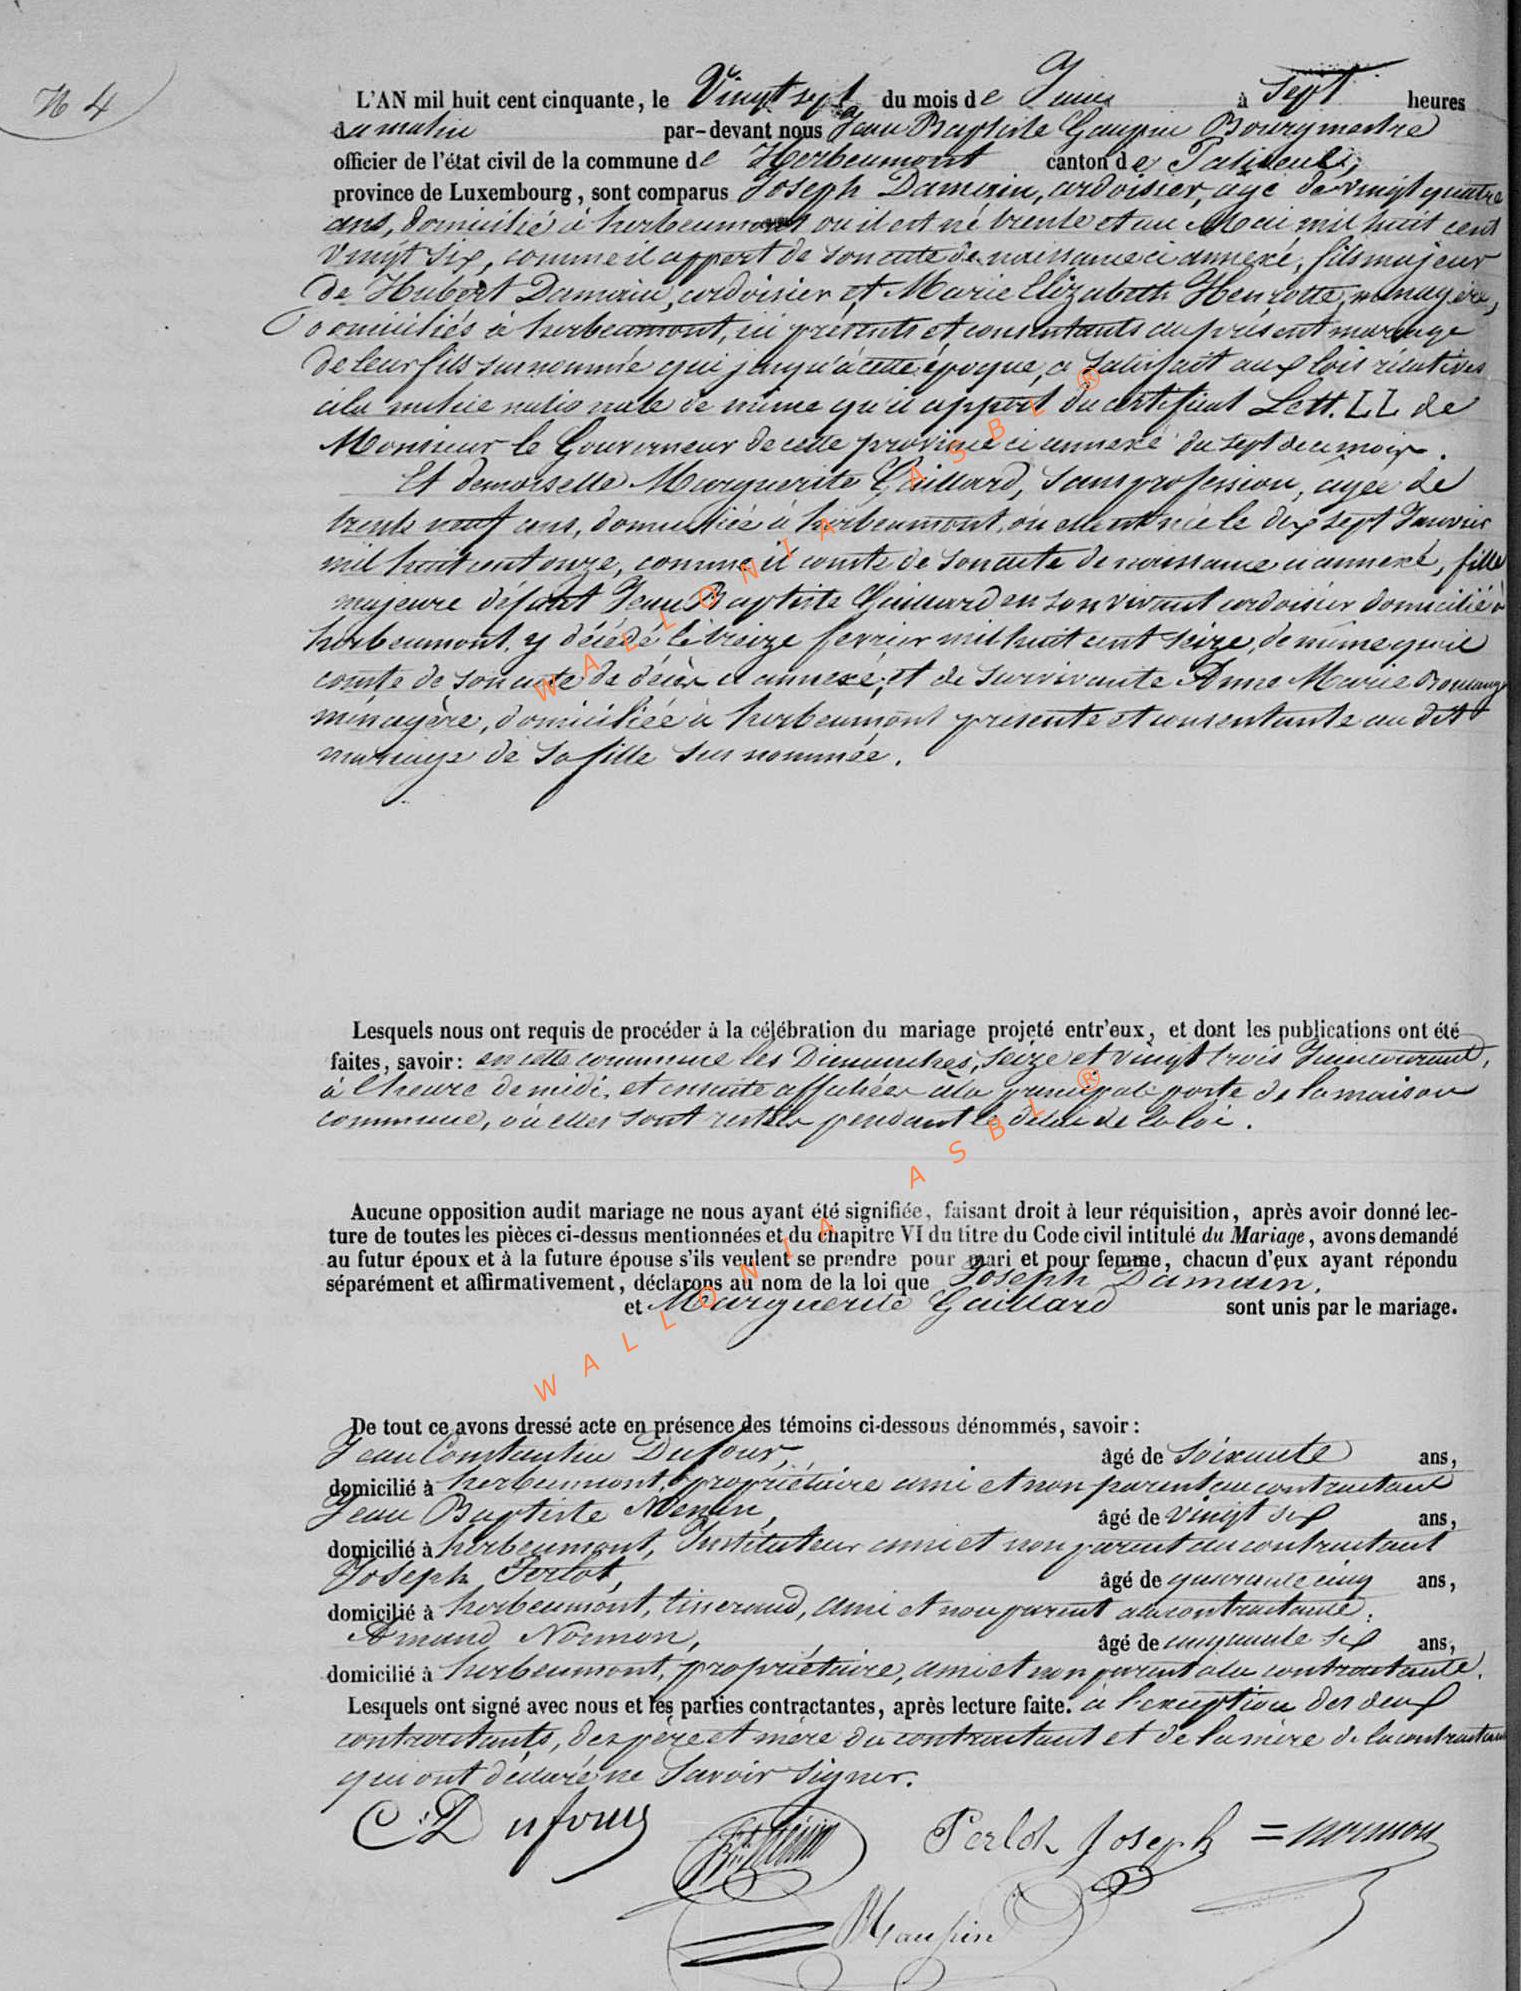 N 4
L'AN mil huit cent cinquante, le Vingt sept du mois de Juin à Sept heures
du matin par-devant nous Jean Baptiste Gaupin Bourgmestre
officier de l'état civil de la commune de Herbeumont canton de Paliseul,
province de Luxembourg, sont comparus Joseph Damain, ardoisier, agé de vingt quatre
ans, domicilié à herbeumont où il est né trente et un Mai mil huit cent
Vingt six, comme il appert de son acte de naissance ci annexé, fils majeur
de Hubert Damain, ardoisier et Marie Elizabeth Henrotte, ménagère,
domiciliés à herbeumont, ici présents et consentants au présent mariage
de leur fils surnommé qui jusqu'à cette époque, a satisfait aux lois rélatives
à la milice nationale de même qu'il appert du certificat Lett. LL de
Monsieur le Gouverneur de cette province ci annexé du sept de ce mois.
Et demoiselle Marguerite Gaillard, Sans profession, agée de
trente neuf ans, domiciliée à herbeumont, où elle est née le dix sept Janvier
mil huit cent onze, comme il conste de son acte de naissance ci annexé, fille
majeure défunt Jean Baptiste Gaillard en son vivant ardoisier domicilié à
herbeumont, y décédé le treize fevrier mil huit cent seize, de même qu'il
conste de son acte de décès ci annexé; et de survivante Anne Marie
ménagère, domiciliée à herbeumont présente et consentante au dit
mariage de sa fille surnommée.
Lesquels nous ont requis de procéder à la célébration du mariage projeté entr'eux, et dont les publications ont été
faites, savoir: en cette commune les Dimanches, seize et vingt trois Juin courant,
à l'heure de midi, et ensuite affichées à la principale porte de la maison
commune, où elles sont restées pendant le délai de la loi.
Aucune opposition audit mariage ne nous ayant été signifiée, faisant droit à leur réquisition, après avoir donné lec-
ture de toutes les pièces ci-dessus mentionnées et du chapitre VI du titre du Code civil intitulé du Mariage, avons demandé
au futur époux et à la future épouse s'ils veulent se prendre pour mari et pour femme, chacun d'eux ayant répondu
séparément et affirmativement, déclarons au nom de la loi que Joseph Damain.
et Marguerite Gaillard sont unis par le mariage.
De tout ce avons dressé acte en présence des témoins ci-dessous dénommés, savoir:
Jean Constantin Dufour, âgé de soixante ans,
domicilié à herbeumont, propriétaire ami et non parent au contractant
Jean Baptiste âgé de vingt six ans,
domicilié à herbeumont, Instituteur ami et non parent au contractant
Joseph Perlot, âgé de quarante cinq ans,
domicilié à herbeumont, tisserand, ami et non parent à la contractante.
Amand Noemon, âgé de cinquante six ans,
domicilié à herbeumont, propriétaire, ami et non parent à la contractante.
Lesquels ont signé avec nous et les parties contractantes, après lecture faite. à l'exception des deux
contractants, des père et mère du contractant et de la mère de la contractante
qui ont déclaré ne Savoir Signer.
C: Dufour Perlot Joseph
WALLONIA ASBL ®
WALLONIA ASBL ®